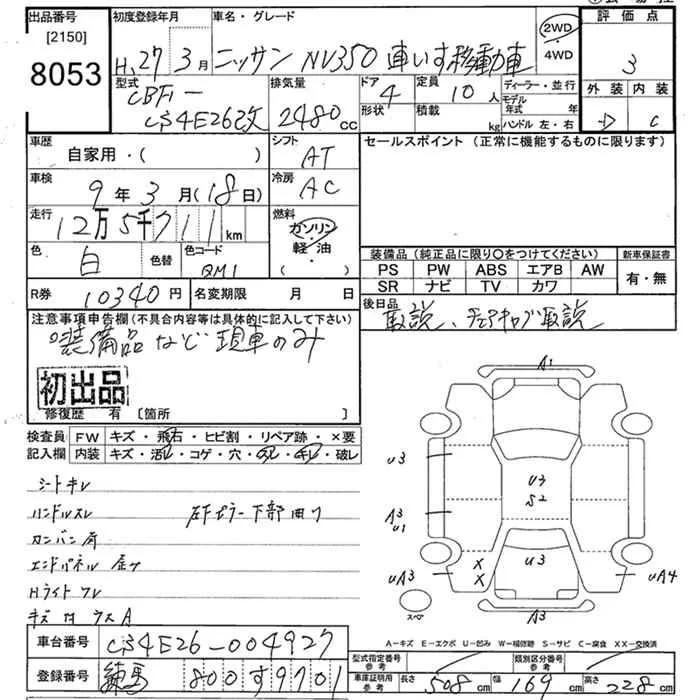 出品番号 初度登録年月 車名・グレード 2WD 4WD 評価点
[2150]
8053
H、27年3月 ニッサン NV350 車いす移動車 3
型式 排気量 ドア 定員 ディーラー・並行 外装 内装
CBF-
CS4E26改 2480cc 4 10人 モデル年式 年
形状 積載 kg ハンドル 左・右 C
車歴 シフト セールスポイント (正常に機能するものに限ります)
自家用・( ) AT
車検 冷房
9年3月(18日) AC
走行 燃料
12万5千711km ガソリン
軽・油
( )
色 色替 色コード 装備品 (純正品に限り○をつけてください) 新車保証書
白 QM1 PS PW ABS エアB AW 有・無
SR ナビ TV カワ
R券 10340円 名変期限 月 日 後日品
取説、チェアキャブ取説
注意事項申告欄(不具合内容等は具体的に記入して下さい)
装備品など現車のみ
初出品
修復歴 有 [箇所 ]
検査員 FW キズ・飛石・ヒビ割・リペア跡・×要
記入欄 内装 キズ・汚レ・コゲ・穴・スレ・キレ・破レ
シートキレ
ハンドルスレ 左Fピラー下部曲り
エンドパネル
Hライト
キズ
A1
U3 U3 S2
A3 U1
X X U3
UA3 UA4
A3
スペア
A-キズ E-エクボ U-凹み W-補修跡 S-サビ C-腐食 XX-交換済
車台番号 CS4E26-004927
登録番号 練馬 800 す 9701
型式指定番号 参考 類別区分番号 参考
車庫証明用 参考 長さ 508cm 幅 169cm 高さ 228cm